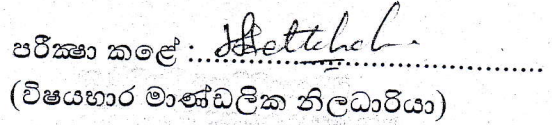 පරීක්ෂා කළේ :..................................................
(විෂයභාර මාණ්ඩලික නිලධාරියා)